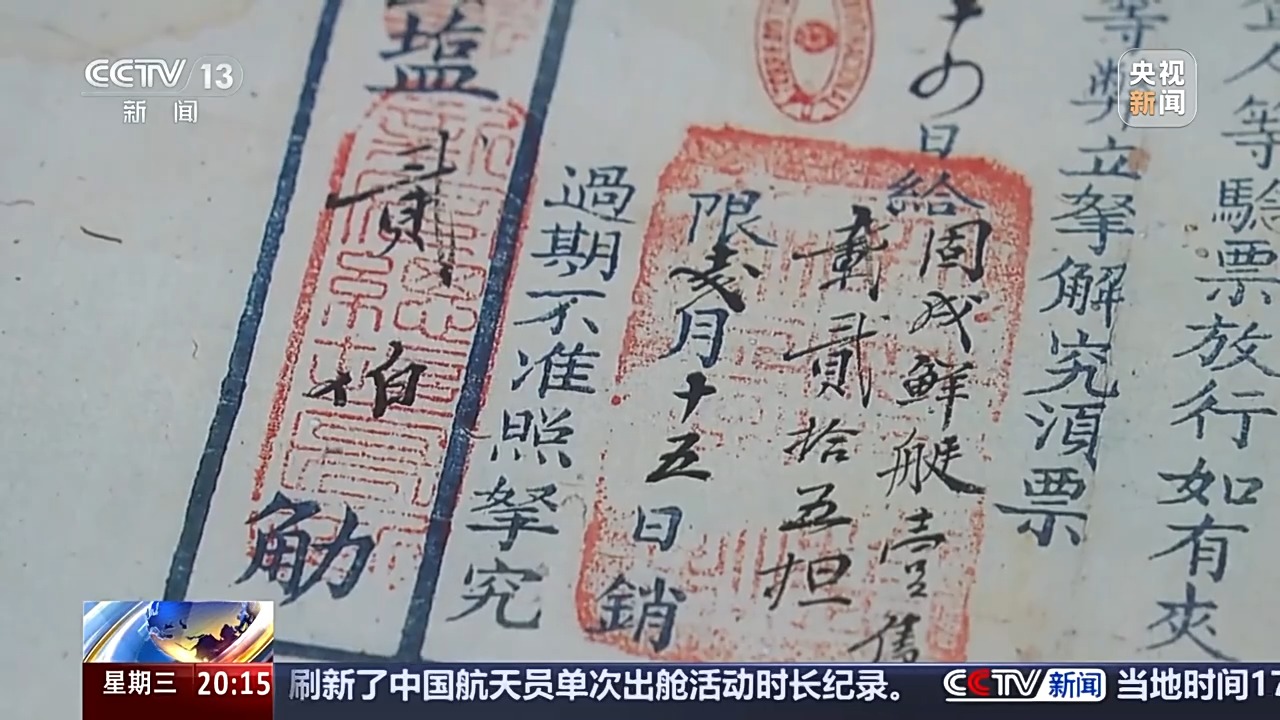 CCTV 13
新闻
央视
新闻
人等驗票放行如有夾
等弊立拏解究湏票
日給
固戍鮮艇壹
載貳拾五担
限
月十五日銷
過期不准照拏究
塩貳佰觔
星期三 20:15
刷新了中国航天员单次出舱活动时长纪录。 CCTV新闻 当地时间17